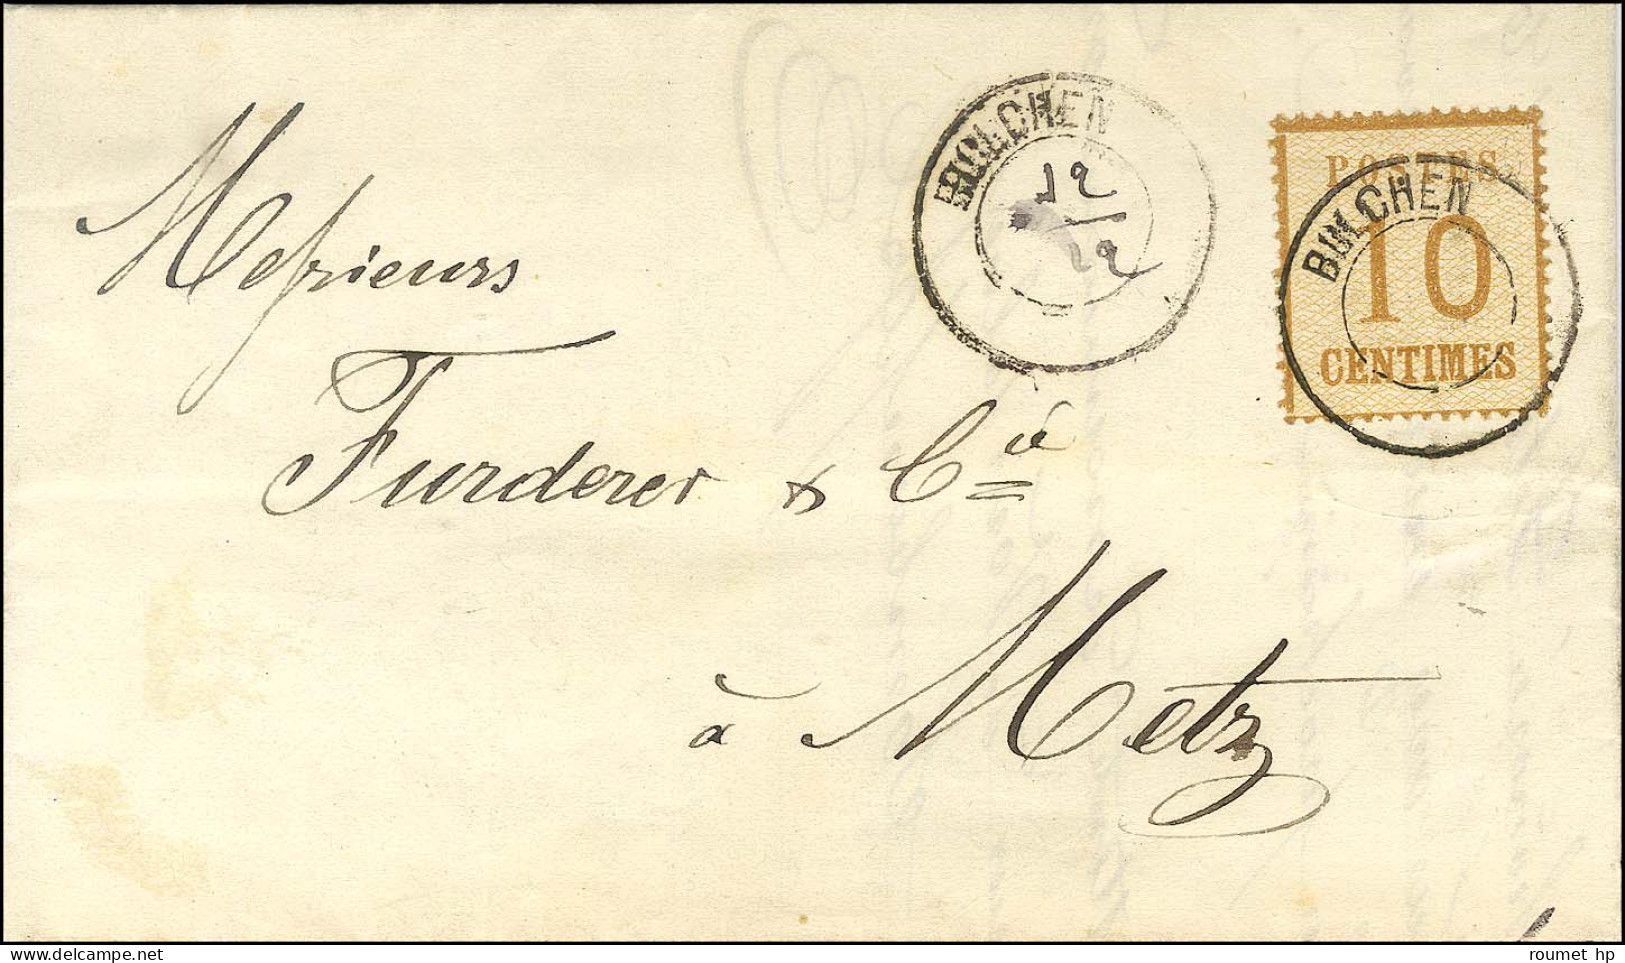 BOLCHEN
12
12
POSTES
BOLCHEN
10
CENTIMES
Messieurs
Furderer & Cie
à Metz
roumet hp